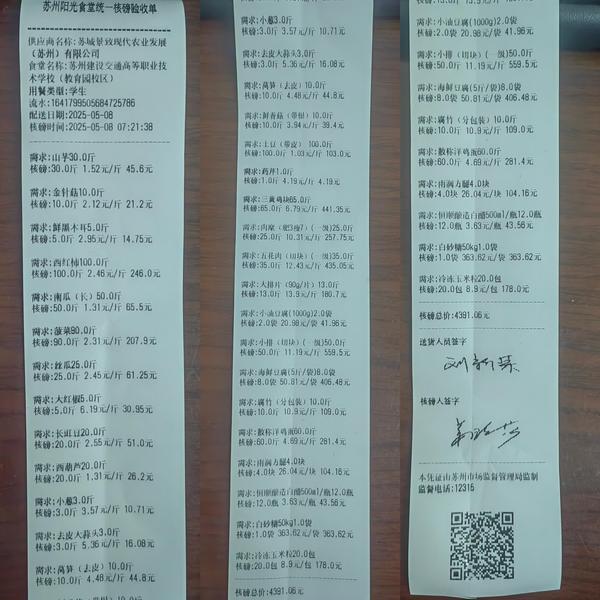 苏州阳光食堂统一核磅验收单
供应商名称:苏城景致现代农业发展
(苏州)有限公司
食堂名称:苏州建设交通高等职业技
术学校(教育园校区)
用餐类型:学生
流水:1641799505684725786
配送日期:2025-05-08
核磅时间:2025-05-08 07:21:38
需求:山芋30.0斤
核磅:30.0斤 1.52元/斤 45.6元
需求:金针菇10.0斤
核磅:10.0斤 2.12元/斤 21.2元
需求:鲜黑木耳5.0斤
核磅:5.0斤 2.95元/斤 14.75元
需求:西红柿100.0斤
核磅:100.0斤 2.46元/斤 246.0元
需求:南瓜(长)50.0斤
核磅:50.0斤 1.31元/斤 65.5元
需求:菠菜90.0斤
核磅:90.0斤 2.31元/斤 207.9元
需求:丝瓜25.0斤
核磅:25.0斤 2.45元/斤 61.25元
需求:大红椒5.0斤
核磅:5.0斤 6.19元/斤 30.95元
需求:长豇豆20.0斤
核磅:20.0斤 2.55元/斤 51.0元
需求:西葫芦20.0斤
核磅:20.0斤 1.31元/斤 26.2元
需求:小葱3.0斤
核磅:3.0斤 3.57元/斤 10.71元
需求:去皮大蒜头3.0斤
核磅:3.0斤 5.36元/斤 16.08元
需求:莴笋(去皮)10.0斤
核磅:10.0斤 4.48元/斤 44.8元
需求:小葱3.0斤
核磅:3.0斤 3.57元/斤 10.71元
需求:去皮大蒜头3.0斤
核磅:3.0斤 5.36元/斤 16.08元
需求:莴笋(去皮)10.0斤
核磅:10.0斤 4.48元/斤 44.8元
需求:鲜香菇(带根)10.0斤
核磅:10.0斤 3.94元/斤 39.4元
需求:土豆(带皮)100.0斤
核磅:100.0斤 1.03元/斤 103.0元
需求:药芹1.0斤
核磅:1.0斤 4.19元/斤 4.19元
需求:三黄鸡块65.0斤
核磅:65.0斤 6.79元/斤 441.35元
需求:肉糜(肥3瘦7)(一级)25.0斤
核磅:25.0斤 10.31元/斤 257.75元
需求:五花肉(切块)(一级)35.0斤
核磅:35.0斤 12.43元/斤 435.05元
需求:大排片(90g/片)13.0斤
核磅:13.0斤 13.9元/斤 180.7元
需求:小油豆腐(1000g)2.0袋
核磅:2.0袋 20.98元/袋 41.96元
需求:小排(切块)(一级)50.0斤
核磅:50.0斤 11.19元/斤 559.5元
需求:海鲜豆腐(5斤/袋)8.0袋
核磅:8.0袋 50.81元/袋 406.48元
需求:腐竹(分包装)10.0斤
核磅:10.0斤 10.9元/斤 109.0元
需求:散称洋鸡蛋60.0斤
核磅:60.0斤 4.69元/斤 281.4元
需求:南洞方腿4.0块
核磅:4.0块 26.04元/块 104.16元
需求:恒顺酿造白醋500ml/瓶12.0瓶
核磅:12.0瓶 3.63元/瓶 43.56元
需求:白砂糖50kg1.0袋
核磅:1.0袋 363.62元/袋 363.62元
需求:冷冻玉米粒20.0包
核磅:20.0包 8.9元/包 178.0元
核磅总价:4391.06元
需求:小油豆腐(1000g)2.0袋
核磅:2.0袋 20.98元/袋 41.96元
需求:小排(切块)(一级)50.0斤
核磅:50.0斤 11.19元/斤 559.5元
需求:海鲜豆腐(5斤/袋)8.0袋
核磅:8.0袋 50.81元/袋 406.48元
需求:腐竹(分包装)10.0斤
核磅:10.0斤 10.9元/斤 109.0元
需求:散称洋鸡蛋60.0斤
核磅:60.0斤 4.69元/斤 281.4元
需求:南洞方腿4.0块
核磅:4.0块 26.04元/块 104.16元
需求:恒顺酿造白醋500ml/瓶12.0瓶
核磅:12.0瓶 3.63元/瓶 43.56元
需求:白砂糖50kg1.0袋
核磅:1.0袋 363.62元/袋 363.62元
需求:冷冻玉米粒20.0包
核磅:20.0包 8.9元/包 178.0元
核磅总价:4391.06元
送货人员签字
核磅人签字
本凭证由苏州市场监督管理局监制
监督电话:12315